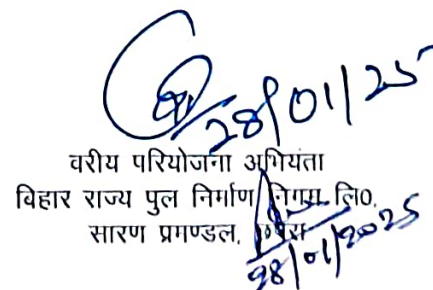 28/01/25
वरीय परियोजना अभियंता
बिहार राज्य पुल निर्माण निगम लि०,
सारण प्रमण्डल, छपरा
28/01/2025